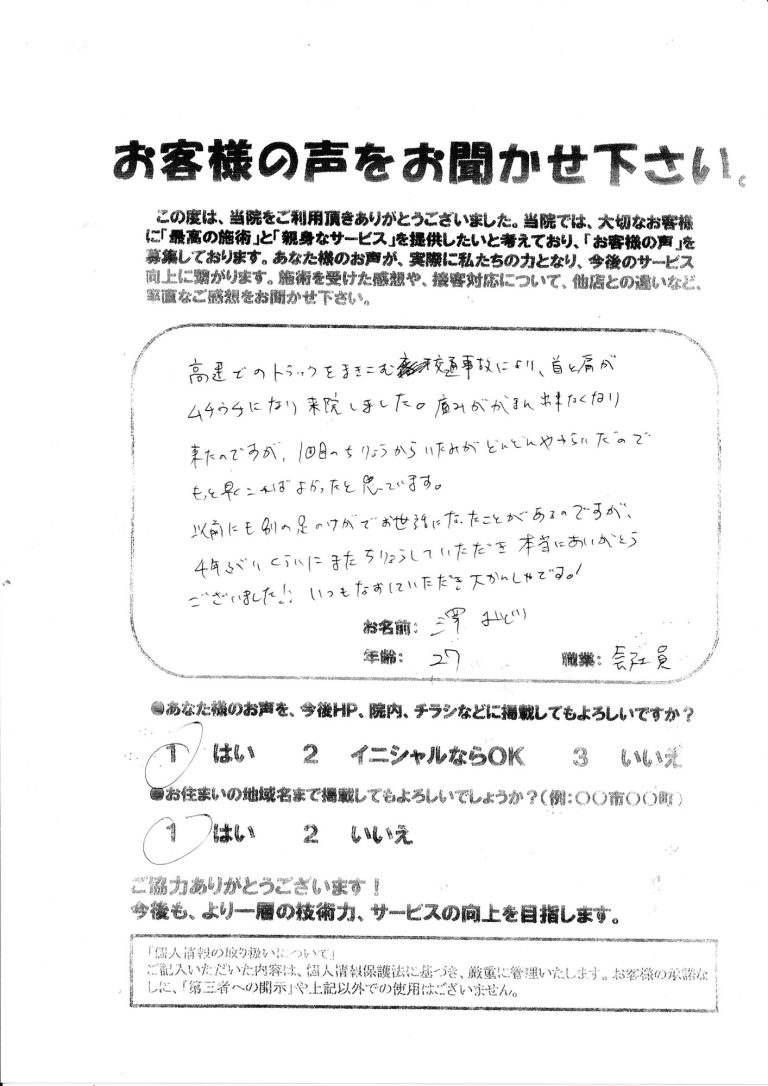 お客様の声をお聞かせ下さい。
この度は、当院をご利用頂きありがとうございました。当院では、大切なお客様
に「最高の施術」と「親身なサービス」を提供したいと考えており、「お客様の声」を
募集しております。あなた様のお声が、実際に私たちの力となり、今後のサービス
向上に繋がります。施術を受けた感想や、接客対応について、他店との違いなど、
率直なご感想をお聞かせ下さい。
高速でのトラックをまきこむ交通事故により、首と肩が
ムチウチになり来院しました。痛みががまん出来なくなり
来たのですが、1回目のちりょうからいたみがどんどんやわらいだので
もっと早くこればよかったと思ています。
以前にも別の足のけがでお世話になったことがあるのですが、
4年ぶりくらいにまたちりょうしていただき本当にありがとう
ございました!! いつもなおしていただき大かんしゃです。!
お名前: 澤 みどり
年齢: 27 職業: 会社員
●あなた様のお声を、今後HP、院内、チラシなどに掲載してもよろしいですか?
1 はい 2 イニシャルならOK 3 いいえ
●お住まいの地域名まで掲載してもよろしいでしょうか?(例:○○市○○町)
1 はい 2 いいえ
ご協力ありがとうございます!
今後も、より一層の技術力、サービスの向上を目指します。
「個人情報の取り扱いについて」
ご記入いただいた内容は、個人情報保護法に基づき、厳重に管理いたします。お客様の承諾な
しに、「第三者への開示」や上記以外での使用はございません。